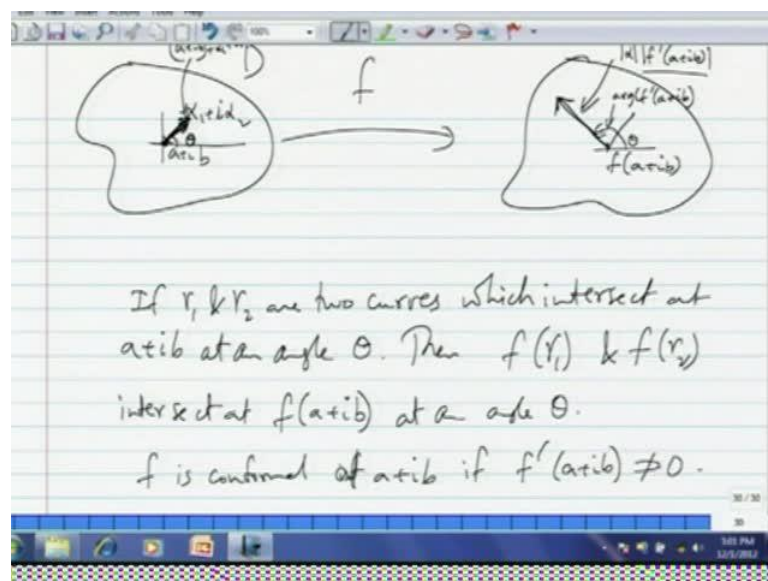 100%
f
α₁+iα₂
θ
a+ib
|α||f'(a+ib)|
arg(f'(a+ib)
θ
f(a+ib)
If γ₁ & γ₂ are two curves which intersect at
a+ib at an angle θ. Then f(γ₁) & f(γ₂)
intersect at f(a+ib) at an angle θ.
f is conformal at a+ib if f'(a+ib) ≠ 0.
30/30
30
3:01 PM
12/5/2012